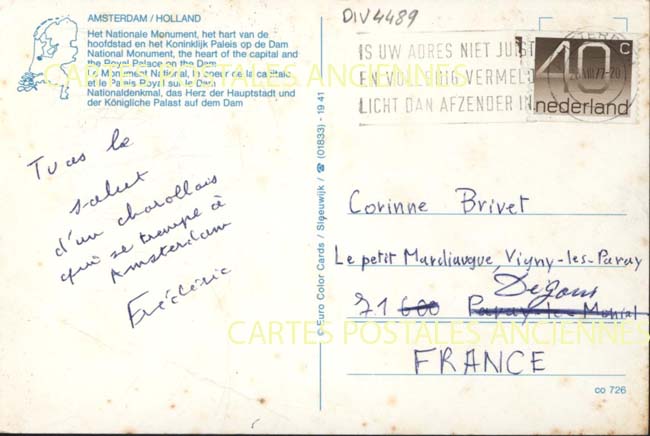 AMSTERDAM / HOLLAND
Het Nationale Monument, het hart van de
hoofdstad en het Koninklijk Paleis op de Dam
National Monument, the heart of the capital and
the Royal Palace on the Dam
Le Monument National, le coeur de la capitale
et le Palais Royal sur le Dam
Nationaldenkmal, das Herz der Hauptstadt und
der Königliche Palast auf dem Dam
CARTES POSTALES ANCIENNES
DIV4489
IS UW ADRES NIET JUIST
EN VOLLEDIG VERMELD
LICHT DAN AFZENDER IN
40 c
nederland
Tu as le
salut
d'un charollais
qui se trempe à
Amsterdam
Frédéric
© Euro Color Cards / Sleeuwijk / ☎ (01833) - 19 41
Corinne Brivet
Le petit Vigny-les-Paray
Digoin
71 600 Paray-le-Monial
CARTES POSTALES ANCIENNES
FRANCE
co 726